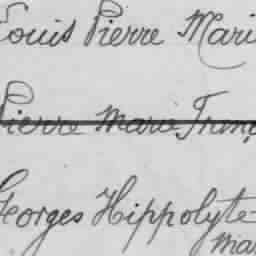 Louis Pierre Mari
Pierre Marie Franç
Georges Hippolyte
Mar